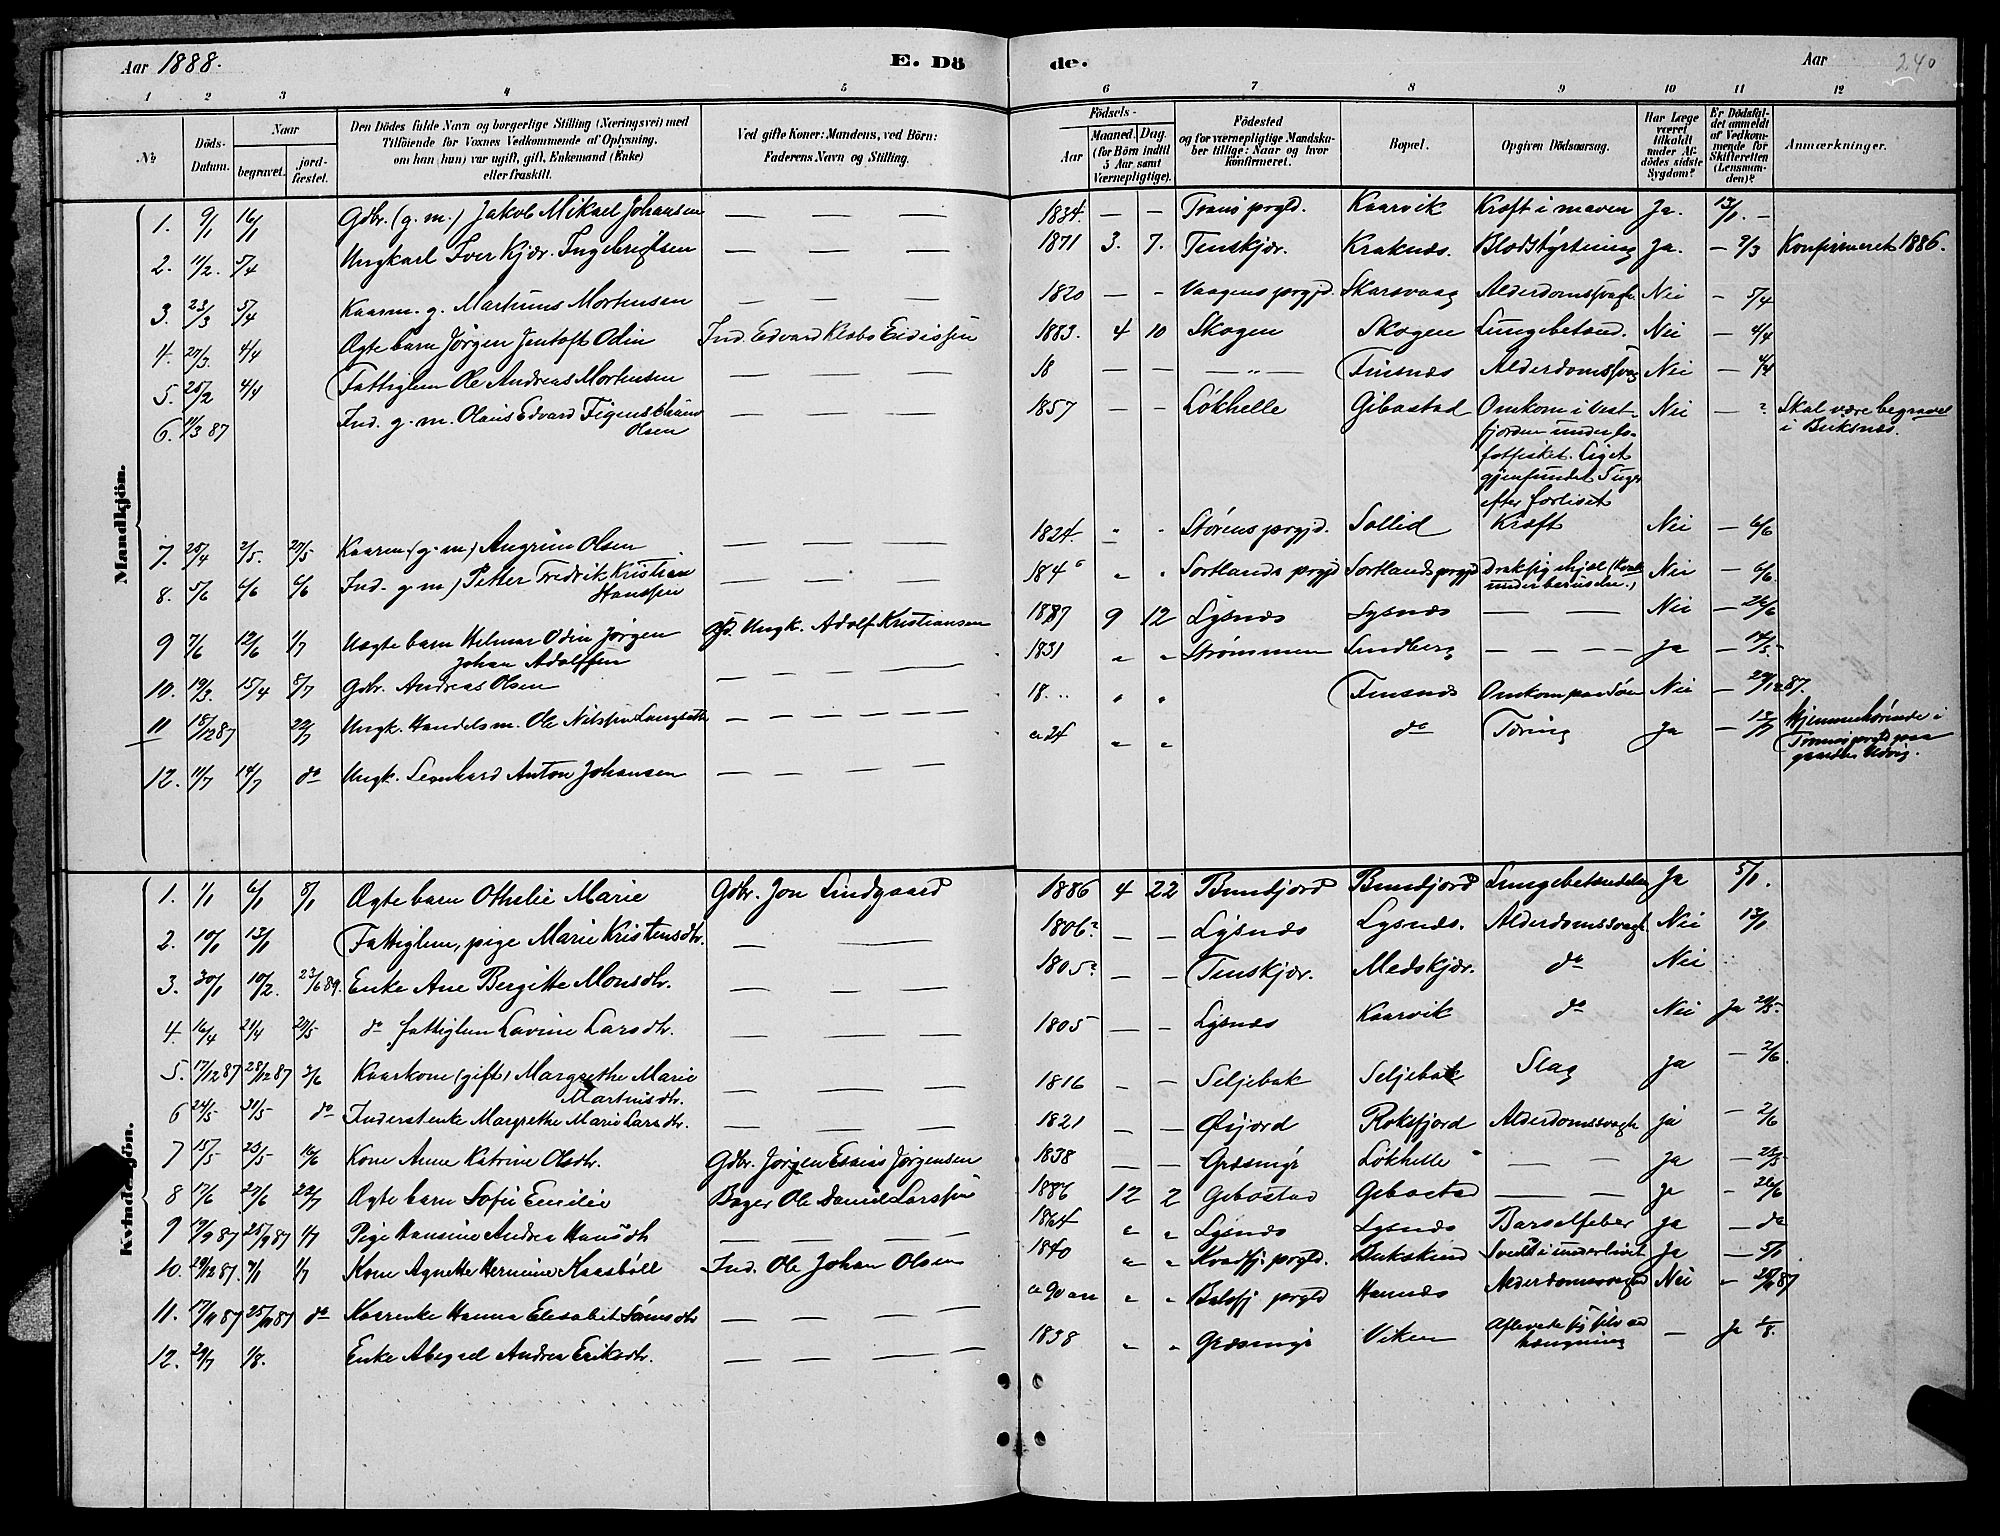 Aar 1888. E. Dö de. Aar 240
1 2 3 4 5 6 7 8 9 10 11 12
No. Döds-Datum. Naar begravet. jord-fæstet. Den Dödes fulde Navn og borgerlige Stilling (Næringsvei) med Tilföiende for Voxnes Vedkommende af Oplysning, om han (hun) var ugift, gift, Enkemand (Enke) eller fraskilt. Ved gifte Koner: Mandens, ved Börn: Faderens Navn og Stilling. Födsels- Aar Maaned. Dag. (for Börn indtil 5 Aar samt Værnepligtige). Födested og for værnepligtige Mandskaber tillige: Naar og hvor konfirmeret. Bopæl. Opgiven Dödsaarsag. Har Læge været tilkaldt under Afdödes sidste Sygdom? Er Dödsfaldet anmeldt af Vedkommende for Skifteretten (Lensmanden)? Anmærkninger.
Mandkjön.
1. 9/1 16/1 Gdbr. (g. m.) Jakob Mikael Johansen — — — 1834. — — Trans prgld. Kaarvik Kræft i maven Ja. 13/1. —
2. 11/2. 5/4 Ungkarl Iver Kjær. Ingebrigtsen — — — 1871 3. 7. Tenskjær. Kraknæs. Blodstyrtning Ja. — 9/3 Konfirmeret 1886.
3. 23/3 5/4 Kaarm. g. Martinus Mortensen — — — 1820 — - Vaagens prgjd. Skarsvaag Alderdomssvagh. Nei — 5/4
4. 27/3. 4/4 Ægte barn Jørgen Jentoft Odin Ind. Edvard Klabo Eidissen 1883. 4 10 Skogen Skogen Lungebetænd. Nei — 4/4
5. 25/2 4/4 Fattiglem Ole Andreas Mortensen — — — 18 — — — „ — Finsnæs Alderdomssvag Nei — 4/4
6. 11/3 87 Ind. g. m. Olaus Edvard Figenschau — — — 1857 — - Løkhelle Gibostad Omkom i Vest- Nei — ? Skal være begravet
Olsen fjorden under Lo- i Buksnæs.
fotfisket. Liget
gjenfundet 5 uger
efter forliset
7. 25/4 2/5. 27/5 Kaarm. (g. m) Angrim Olsen — — — 1824. " - Størens prgjd. Sollid Kræft Nei — 6/6
8. 5/6 6/6 6/6 Ind. g. m) Petter Fredrik Kristian — — — 1846 " " Sortlands prgjd Sortlands prgjd Drak sig ihjel Nei — 6/6.
Hanssen under beruselse.)
9 7/6 12/6 1/7 Uægte barn Helmer Odin Jørgen Ungk. Adolf Kristiansen 1887 9 12 Lysnæs Lysnæs — — Nei — 26/6
Johan Adolfsen
10. 19/3. 15/4 8/7 Gdbr. Andreas Olsen — — — 1831 " " Strømmen Lindberg — — — — Ja — 14/5.
11 18/12 87 22/7 Ungk. Handelsm. Ole Nilssen — — — — — 18. .. " " Finsnæs Omkom paa Søen Nei — 29/12 87.
12. 11/7 14/7 do Ungk. Leonhard Anton Johansen — — — ca 24 " " do Tæring Ja — 13/7 Hjemmehørende i
Tromsø prgld paa
gaarden
Kvindekjön.
1. 1/1 6/1 8/1 Ægte barn Othelie Marie Gdbr. Jon Lindgaard 1886 4 22 Bundjord Bundjord Lungebetændelse Ja 5/1.
2. 10/1 13/1 Fattiglem, pige Marie Kristensdtr. — — — 1806? — — Lysnæs Lysnæs. Alderdomssvagh. Nei 13/1
3. 30/1 10/2. 23/6 89. Enke Ane Bergitte Monsdtr. — — — 1805? — — Tenskjær. Medskjær. do Nei ..
4. 16/4 21/4 27/5 do fattiglem Lavine Larsdtr. — — — 1805 — — Lysnæs Kaarvik do Nei Ja 29/5.
5. 17/12 87 28/12 87 2/6 Kaarkone (gift) Margrethe Marie — — — 1816 — — Seljebak Seljebak Slag Ja — 2/6
Martinisdtr.
6 24/5 31/5 do Inderstenke Margrethe Marie Larsdtr. — — — 1821 — — Øijord Roksfjord Alderdomssvagh. Ja — 2/6
7 15/5 23/5 16/6 Kone Anne Katrine Olsdtr. Gdbr. Jørgen Esaias Jørgensen 1838 — — Græsmyr Løkhelle — — Ja — 28/5
8 17/6 27/6 22/7 Ægte barn Sofie Emilie Bager Ole Daniel Larssen 1886 12 2 Gibostad Gibostad — — Ja - 26/6
9 19/9 87 25/9 87 1/7 Pige Hansine Andrea Hansdtr — — — 1864 " " Lysnæs Lysnæs Barselfeber Ja — do
10. 29/12 87. 7/1 1/7 Kone Agnette Hermine Kaasbøll Ind. Ole Johan Olsen 1840 " " Kvædfj. prgld. Bukskind Svulst i underlivet Ja — 5/1
11. 17/11 87 25/11 87 do Kaarenke Hanna Elisabet Tømsdtr — — — ca 90 aar " " Balsfj prgld Hannæs Alderdomssvaghed Nei " 28/11 87
12. 29/7 1/8. Enke Abigael Andrea Eriksdtr. — — — 1838 " " Græsmyr Viken Aflivede sig selv ved — Ja 1/8.
hængning